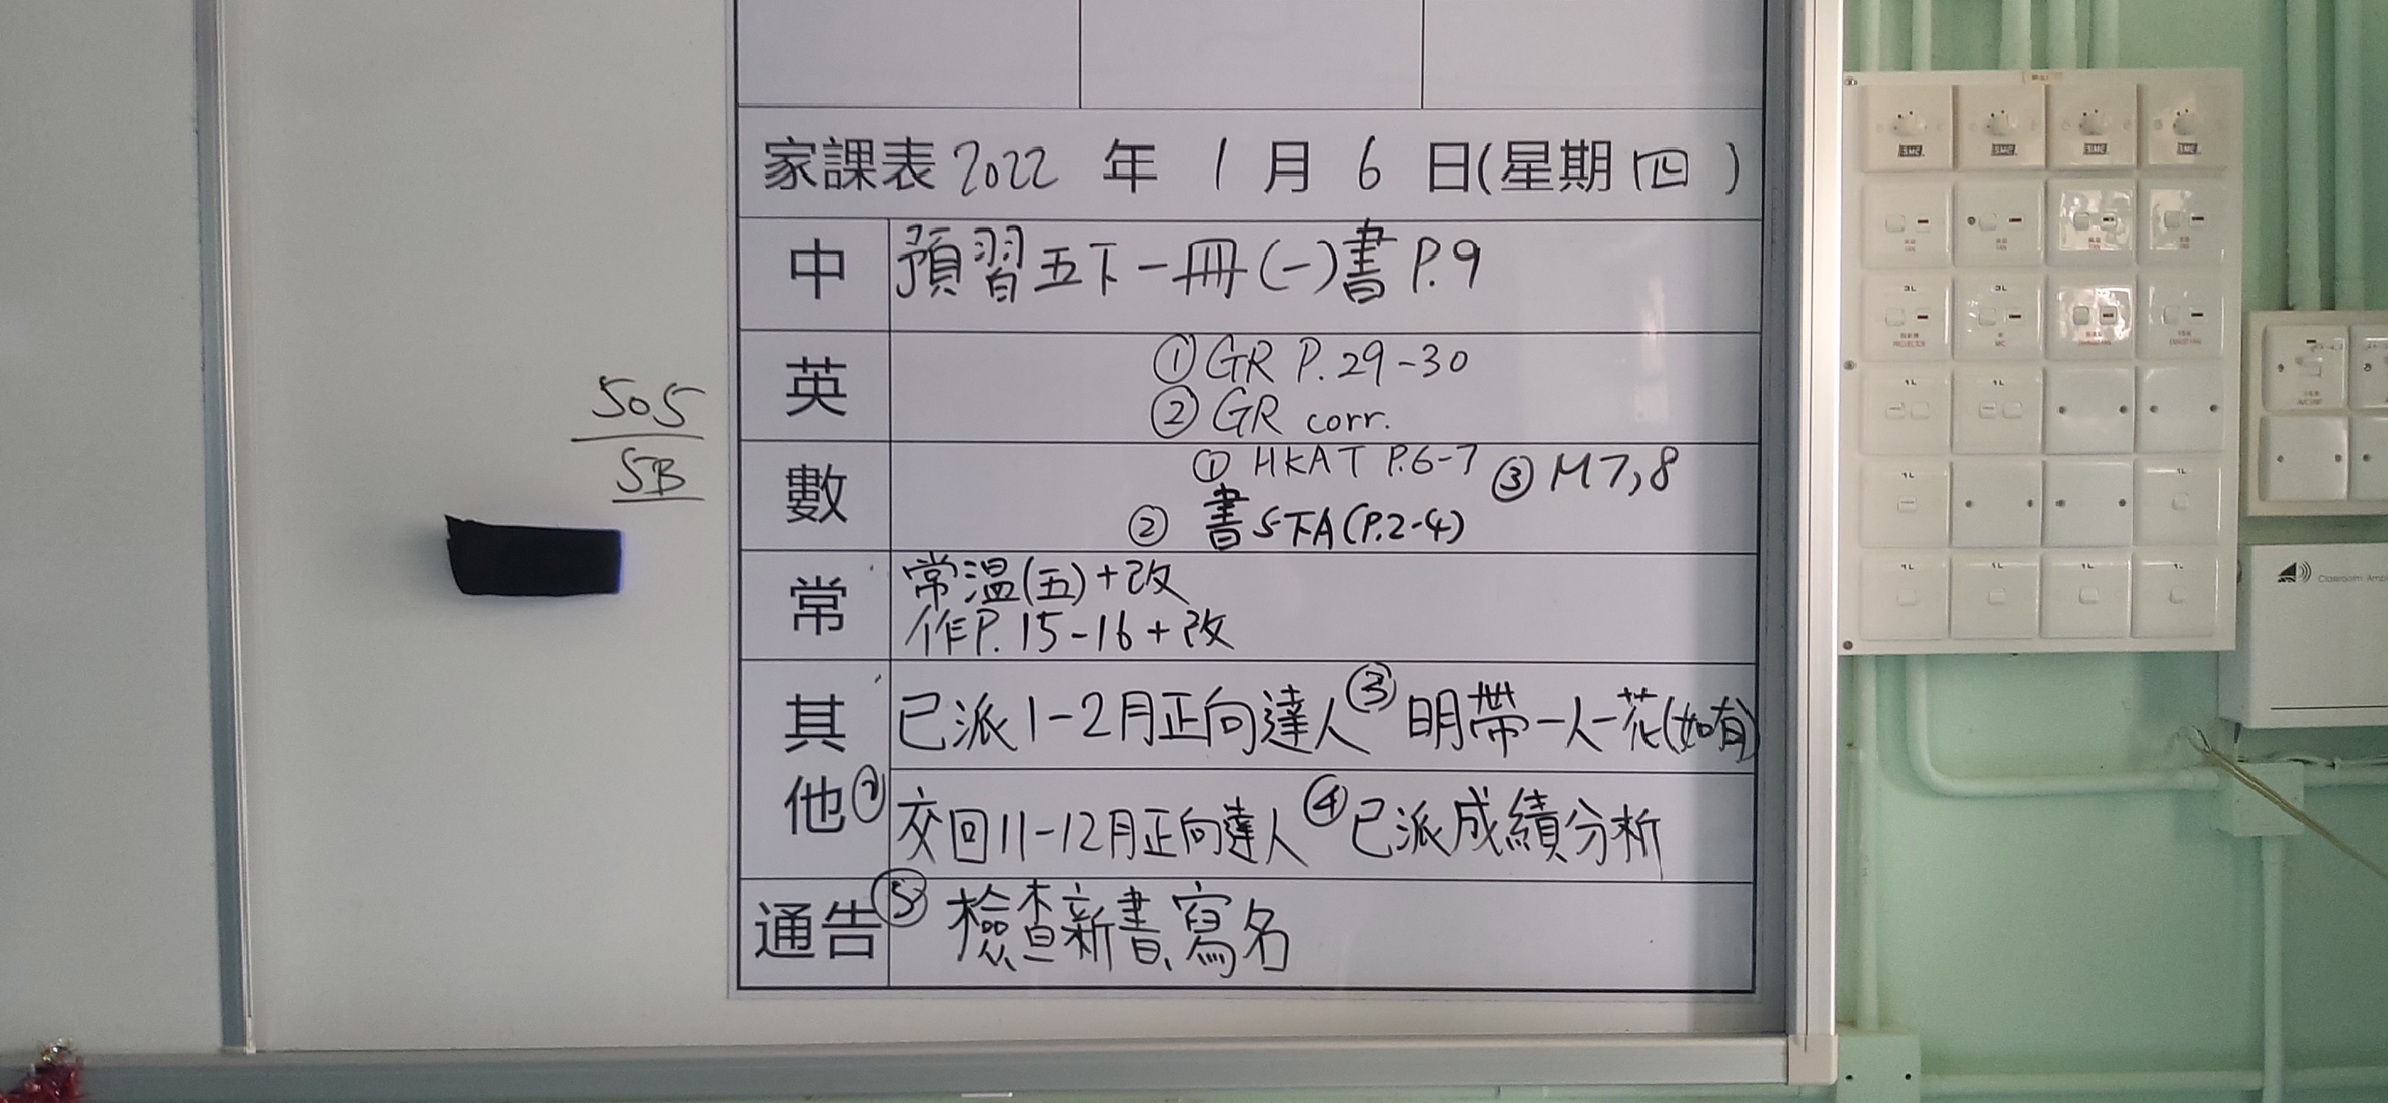 家課表 2022 年 1 月 6 日(星期四)
中 預習五下一冊(一)書 P.9
英 ① GR P.29-30
② GR corr.
數 ① HKAT P.6-7 ③ M7,8
② 書5下A(P.2-4)
常 常溫(五)+改
作P.15-16+改
其他 已派1-2月正向達人 ③ 明帶一人一花(如有)
② 交回11-12月正向達人 ④ 已派成績分析
通告 ⑤ 檢查新書、寫名
505
5B
FAN
PROJECTOR
MIC
Classroom Ampl